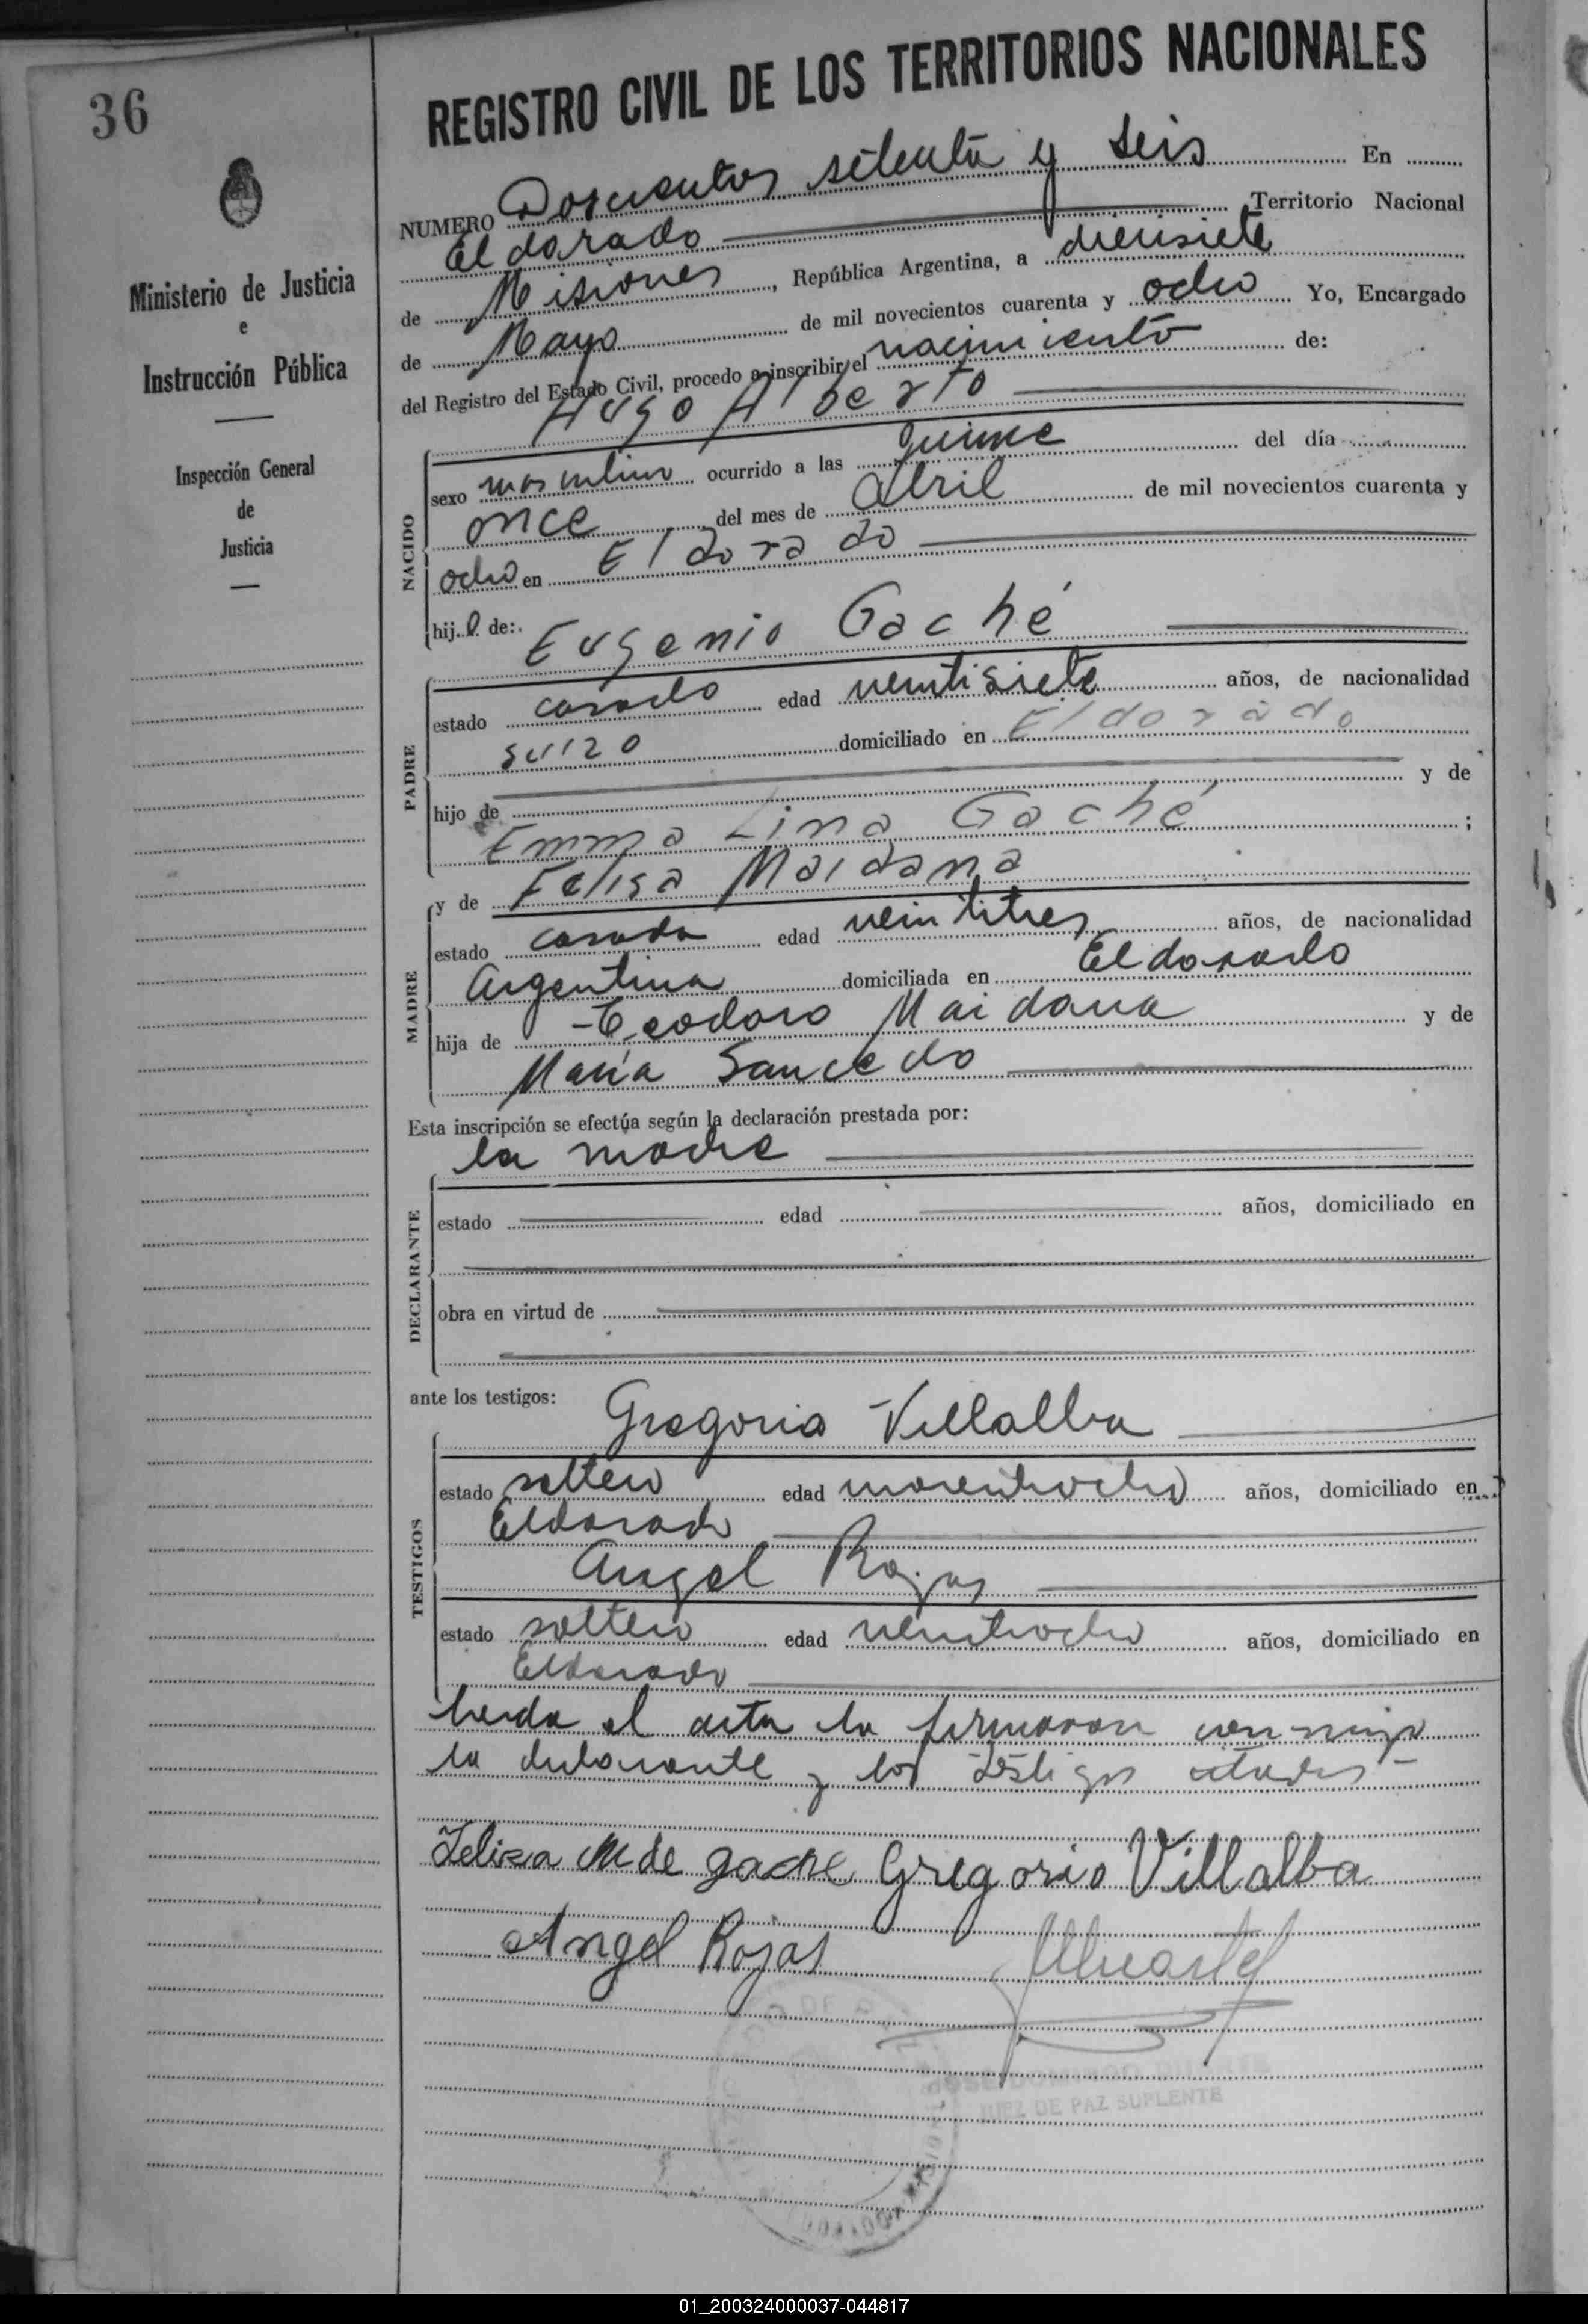 36
REGISTRO CIVIL DE LOS TERRITORIOS NACIONALES
NUMERO Doscientos setenta y seis En
Eldorado Territorio Nacional
de Misiones, República Argentina, a diecisiete
de Mayo de mil novecientos cuarenta y ocho Yo, Encargado
del Registro del Estado Civil, procedo a inscribir el nacimiento de:
Hugo Alberto
Ministerio de Justicia
e
Instrucción Pública
Inspección General
de
Justicia
NACIDO
sexo masculino ocurrido a las quince del día
once del mes de Abril de mil novecientos cuarenta y
ocho en Eldorado
hijo de: Eugenio Gaché
PADRE
estado casado edad veintisiete años, de nacionalidad
suizo domiciliado en Eldorado
hijo de y de
Emma Lina Gaché;
MADRE
y de Felisa Maidana
estado casada edad veintitres años, de nacionalidad
Argentina domiciliada en Eldorado
hija de Teodoro Maidana y de
María Saucedo
Esta inscripción se efectúa según la declaración prestada por:
la madre
DECLARANTE
estado edad años, domiciliado en
obra en virtud de
ante los testigos: Gregorio Villalba
TESTIGOS
estado soltero edad años, domiciliado en
Eldorado
Angel Rojas
estado soltero edad veintiocho años, domiciliado en
Eldorado
Leida el acta la firmaron conmigo
la declarante y los testigos citados
Felisa M de gache Gregorio Villalba
Angel Rojas
JOSE DOMINGO DUARTE
JUEZ DE PAZ SUPLENTE
01_200324000037-044817